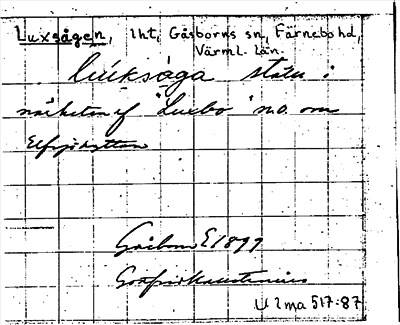 Luxsågen, lht, Gåsborns sn, Färnebo hd,
Värml. län.
lúuksåga
närheten af "Luxbo" n.o. om
Elfsjöhyttan
Gåsborn E 1899
U 2ma 517:87